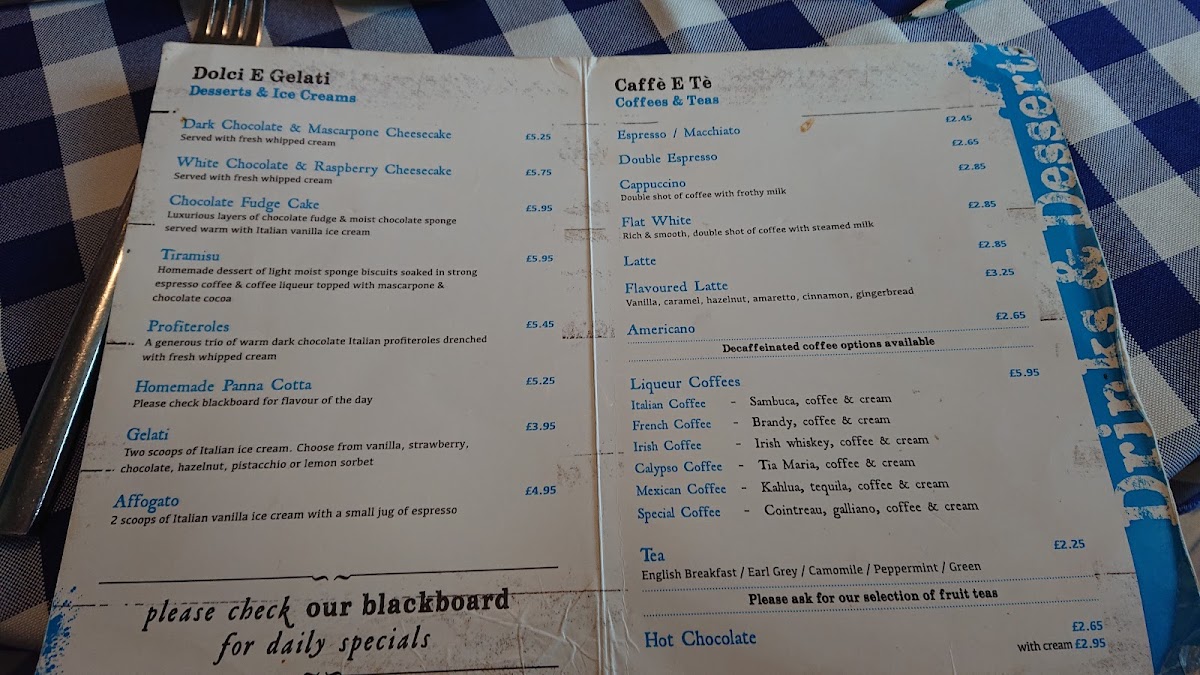 Dolci E Gelati
Desserts & Ice Creams
Dark Chocolate & Mascarpone Cheesecake £5.25
Served with fresh whipped cream
White Chocolate & Raspberry Cheesecake £5.75
Served with fresh whipped cream
Chocolate Fudge Cake £5.95
Luxurious layers of chocolate fudge & moist chocolate sponge
served warm with Italian vanilla ice cream
Tiramisu £5.95
Homemade dessert of light moist sponge biscuits soaked in strong
espresso coffee & coffee liqueur topped with mascarpone &
chocolate cocoa
Profiteroles £5.45
A generous trio of warm dark chocolate Italian profiteroles drenched
with fresh whipped cream
Homemade Panna Cotta £5.25
Please check blackboard for flavour of the day
Gelati £3.95
Two scoops of Italian ice cream. Choose from vanilla, strawberry,
chocolate, hazelnut, pistacchio or lemon sorbet
Affogato £4.95
2 scoops of Italian vanilla ice cream with a small jug of espresso
please check our blackboard
for daily specials
Caffè E Tè
Coffees & Teas
Espresso / Macchiato £2.45
Double Espresso £2.65
Cappuccino £2.85
Double shot of coffee with frothy milk
Flat White £2.85
Rich & smooth, double shot of coffee with steamed milk
Latte £2.85
Flavoured Latte £3.25
Vanilla, caramel, hazelnut, amaretto, cinnamon, gingerbread
Americano £2.65
Decaffeinated coffee options available
Liqueur Coffees £5.95
Italian Coffee - Sambuca, coffee & cream
French Coffee - Brandy, coffee & cream
Irish Coffee - Irish whiskey, coffee & cream
Calypso Coffee - Tia Maria, coffee & cream
Mexican Coffee - Kahlua, tequila, coffee & cream
Special Coffee - Cointreau, galliano, coffee & cream
Tea £2.25
English Breakfast / Earl Grey / Camomile / Peppermint / Green
Please ask for our selection of fruit teas
Hot Chocolate £2.65
with cream £2.95
Drinks & Desserts